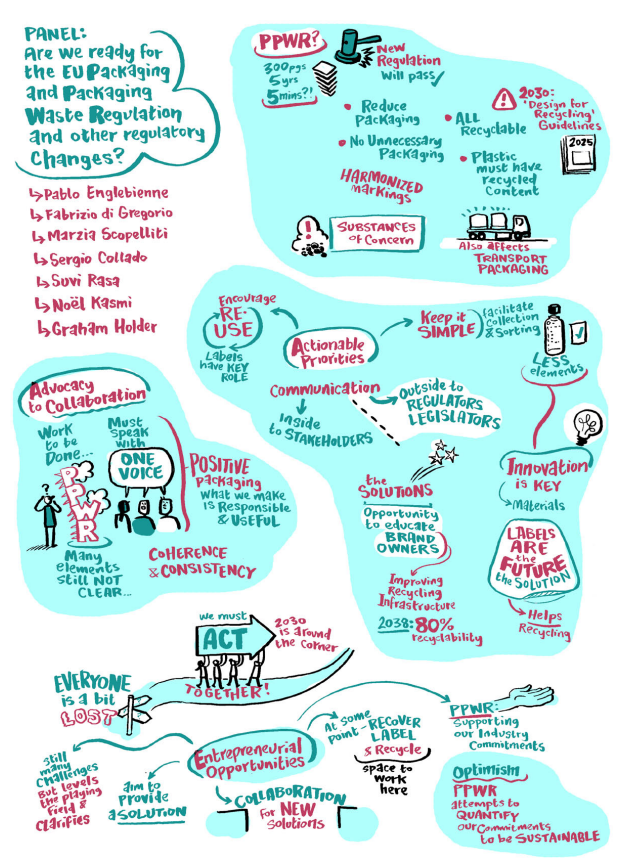 PANEL:
Are we ready for
the EU Packaging
and Packaging
Waste Regulation
and other regulatory
Changes?
Pablo Englebienne
Fabrizio di Gregorio
Marzia Scopelliti
Sergio Collado
Suvi Rasa
Noël Kasmi
Graham Holder
PPWR?
300pgs
5yrs
5mins?!
New
Regulation
will pass
Reduce
Packaging
No Unnecessary
Packaging
HARMONIZED
markings
ALL
Recyclable
Plastic
must have
recycled
Content
2030:
'Design for
Recycling'
Guidelines
2025
!
SUBSTANCES
of Concern
Also affects
TRANSPORT
PACKAGING
Encourage
RE-
USE
Labels
have KEY
ROLE
Actionable
Priorities
Keep it
SIMPLE
facilitate
Collection
& Sorting
LESS
elements
Communication
Inside
to STAKEHOLDERS
Outside to
REGULATORS
LEGISLATORS
the
SOLUTIONS
Opportunity
to educate
BRAND
OWNERS
Improving
Recycling
Infrastructure
2038: 80%
recyclability
Innovation
is KEY
Materials
LABELS
ARE
the
FUTURE
the SOLUTION
Helps
Recycling
Advocacy
to Collaboration
Work
to be
Done...
?
PPWR
Many
elements
still NOT
CLEAR...
Must
speak
with
ONE
VOICE
POSITIVE
Packaging
what we make
is Responsible
& USEFUL
COHERENCE
& CONSISTENCY
we must
ACT
TOGETHER!
2030
is around
the corner
EVERYONE
is a bit
LOST
Entrepreneurial
Opportunities
Still
many
Challenges
But levels
the playing
field &
Clarifies
aim to
Provide
a SOLUTION
COLLABORATION
for NEW
Solutions
At some
point - RECOVER
LABEL
& Recycle
space to
work
here
PPWR:
Supporting
our Industry
Commitments
Optimism
PPWR
attempts to
QUANTIFY
our Commitments
to be SUSTAINABLE